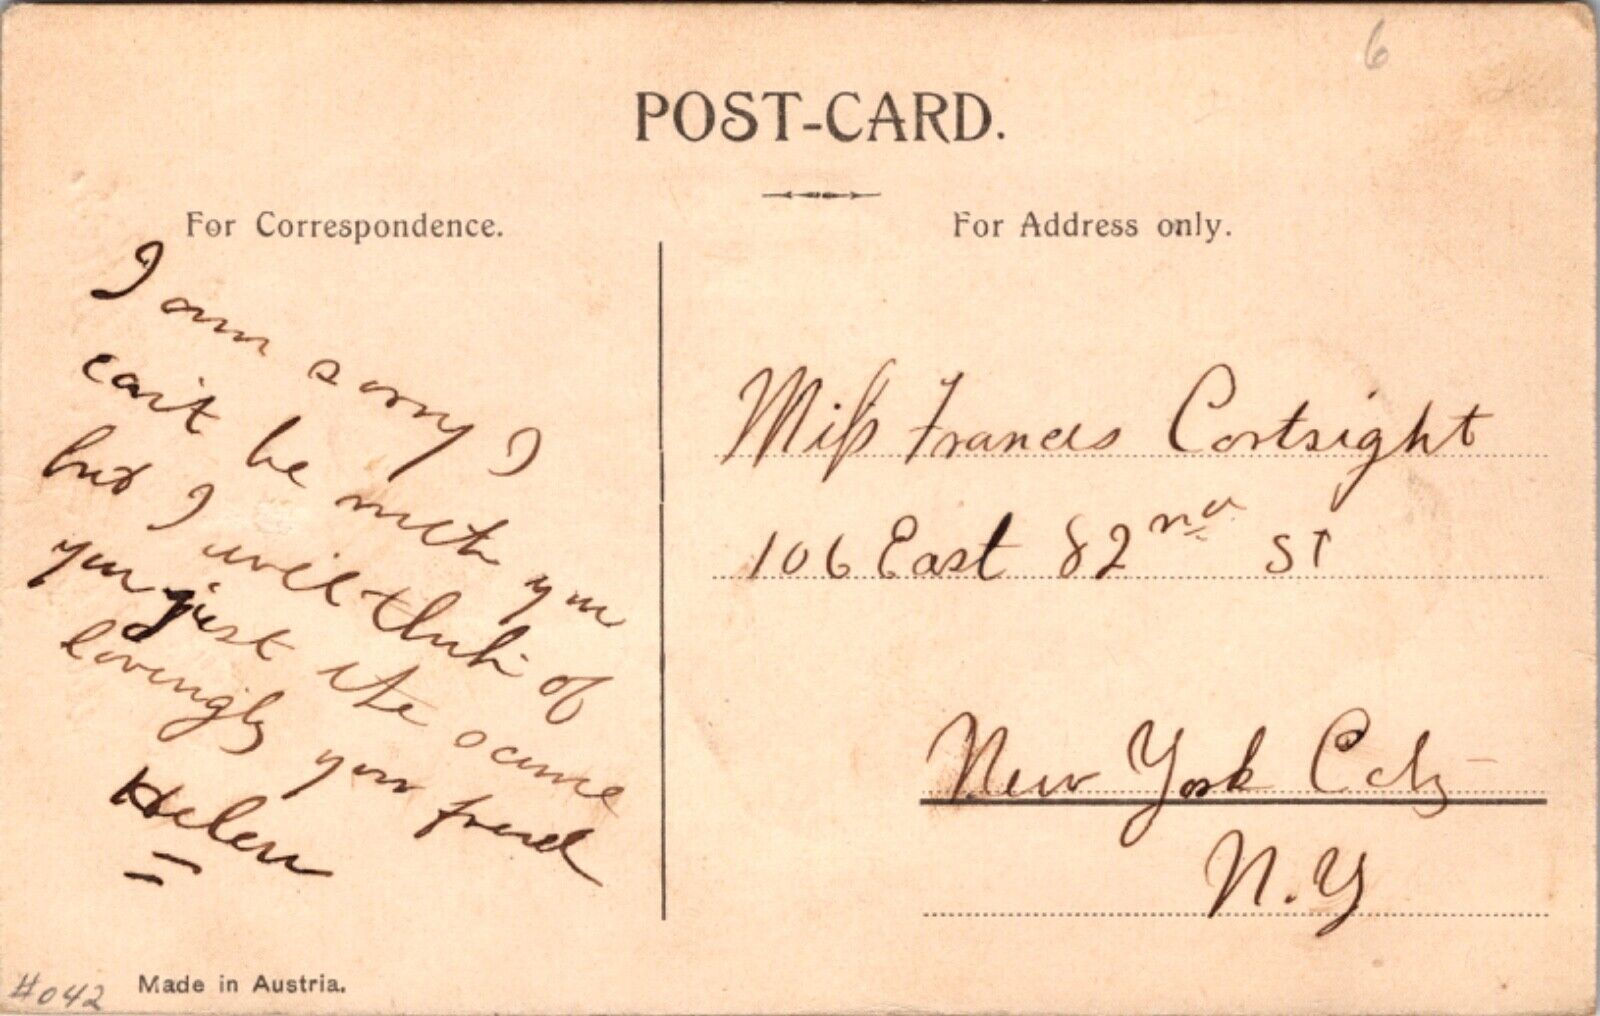 6
POST-CARD.
For Correspondence.
I am sorry I
can't be with you
but I will think of
you just the same
lovingly your friend
Helen
For Address only.
Miss Frances Cortsight
106 East 82nd St
New York City
N.Y
#042
Made in Austria.